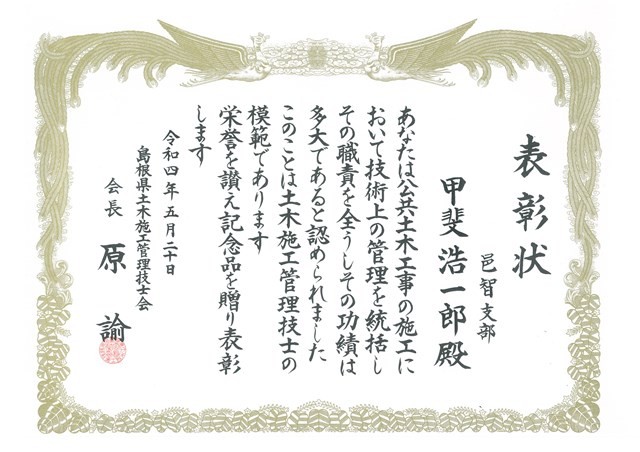 表彰状
邑智支部
甲斐浩一郎殿
あなたは公共土木工事の施工に
おいて技術上の管理を統括し
その職責を全うしその功績は
多大であると認められました
このことは土木施工管理技士の
模範であります
栄誉を讃え記念品を贈り表彰
します
令和四年五月二十日
島根県土木施工管理技士会
会長 原 諭